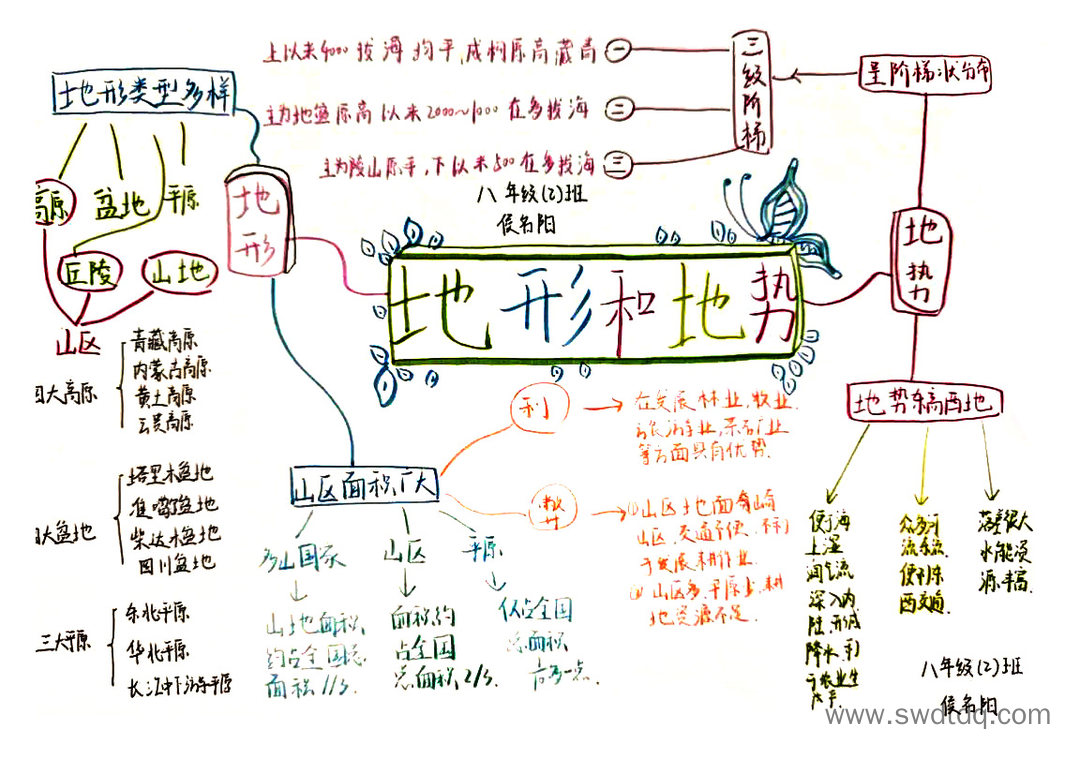 地形和地势
八年级(2)班
侯名阳
地形
地形类型多样
高原
盆地
平原
丘陵
山地
山区
四大高原
青藏高原
内蒙古高原
黄土高原
云贵高原
四大盆地
塔里木盆地
准噶尔盆地
柴达木盆地
四川盆地
三大平原
东北平原
华北平原
长江中下游平原
山区面积广大
多山国家
山地面积
约占全国总
面积1/3.
山区
面积约
占全国
总面积2/3.
平原
仅占全国
总面积
一点.
利
在发展林业,牧业
旅游业,采矿业
等方面具有优势.
弊
①山区地面崎
山区,交通不便,不利
于发展耕作业.
②山区多,平原少,耕
地资源不足.
地势
呈阶梯状分布
三级阶梯
上以米4000拔海均平,成构原高藏青 一
主为地盆原高以米2000~1000在多拔海 二
主为陵山原平,下以米500在多拔海 三
地势西高
便于海
上湿
润气流
深入内
陆,形成
降水,利
于农业生
产.
众多河
流东流
便利东
西交通
落差很大
水能资
源丰富.
八年级(2)班
侯名阳
www.swdtdq.com